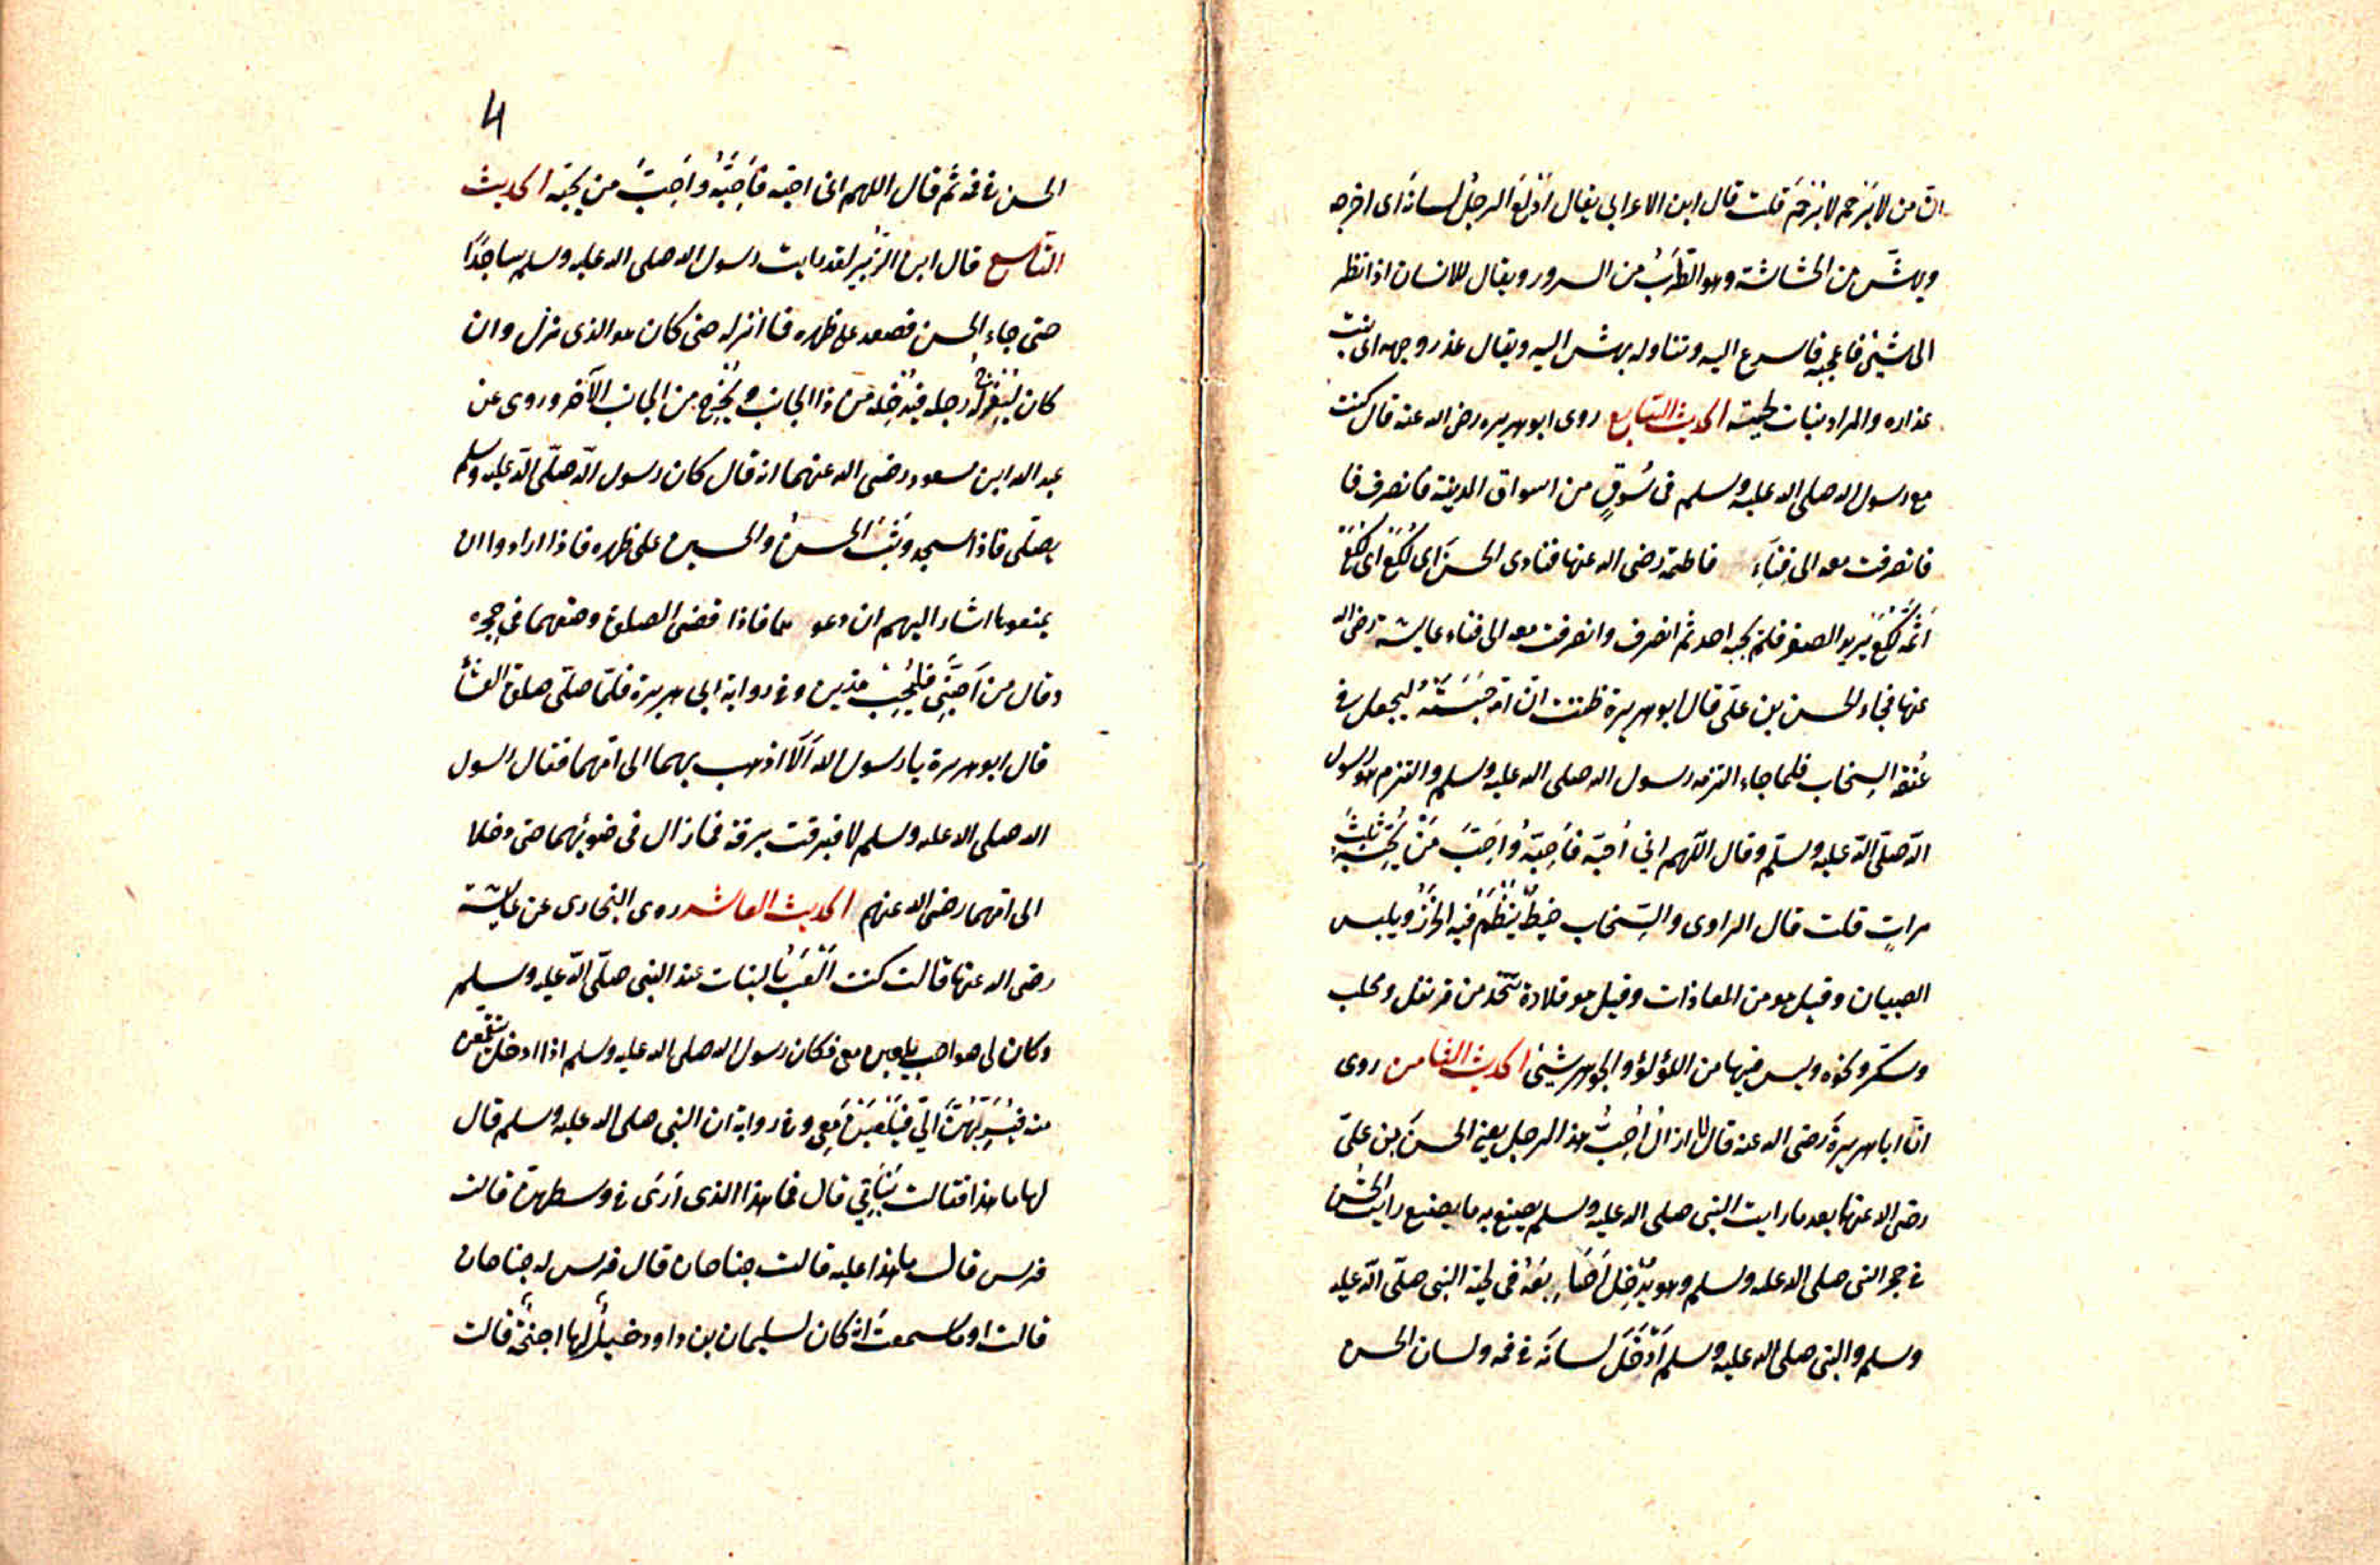 ان من لا يَرحم لا يُرحَم قلت قال ابن الاعرابي يقال اَدْلَعَ الرجلُ لسانه اى اخرجه
ويهشّ من الهشاشة وهو الطَرَبُ من السرور ويقال للانسان اذا نظر
الى شيئ فاعجبه فاسرع اليه وتناوله بهش اليه ويقال عذر وجهه اى نبت
عذاره والمراد نبات لحيته الحديث السابع روى ابو هريره رضى الله عنه قال كنت
مع رسول الله صلى الله عليه وسلم فى سُوقٍ من اسواق المدينة فانصرف فا
فانصرفت معه الى فِناءِ فاطمة رضى الله عنها فنادى الحسن اَى لُكَعُ اى لُكَعُ
اَثَمَّ لُكَعُ يريد الصغر فلم يجبه احد ثم انصرف وانصرفت معه الى فناء عايشة رضى الله
عنها فجاء الحسن بن علىّ قال ابو هريرة ظننت انّ امّه حَبَسَتْهُ ليجعل فى
عُنُقه السِخاب فلما جاء التزمه رسول الله صلى الله عليه وسلم والتزم هو رسول
الله صلّى الله عليه وسلّم وقال اللّهم انى اُحبّه فاَحِبّهُ واَحِبَّ مَنْ يُحِبّه ثلثَ
مراتٍ قلت قال الراوى والسِخاب خيطٌ يُنْظَمُ فيه الخرَزُ ويلبس
الصبيان وقيل هو من المعاذات وقيل هو قلادة تتّخذ من قرنفل ومحلب
وسكّ ونحوه وليس فيها من اللؤلؤ والجوهر شيئ الحديث الثامن روى
انّ ابا هريرةَ رضى الله عنه قال لا ازالُ اُحِبُّ هذا الرجل يعنى الحسنَ بن علىّ
رضى الله عنهما بعد ما رايت النبى صلى الله عليه وسلم يصنع به ما يصنع رايت الحسن
فى حجر النبى صلى الله عليه وسلم وهو يُدْخِل اَصَابِعَهُ فى لحية النبى صلّى الله عليه
وسلم والنبى صلى الله عليه وسلم اَدْخَلَ لسانَه فى فمه ولسان الحسن
4
الحسن فى فمه ثم قال اللهم انى احبّه فاَحِبَّهُ واَحِبَّ من يُحِبّه الحديث
التاسع قال ابن الزُبَير لقد رايت رسول الله صلى الله عليه وسلم ساجدًا
حتى جاء الحسن فصعد على ظهره فما انزله حتى كان هو الذى نزل وان
كان لَيُفرِّج له رجليه فيُدْخِله من ذا الجانب ويُخْرِج من الجانب الآخر وروى عن
عبد الله ابن مسعود رضى الله عنهما انه قال كان رسول الله صلّى الله عليه وسلم
يصلّى فاذا سجد وَثَبَ الحسنُ والحسين على ظهره فاذا ارادوا ان
يمنعوهما اشار اليهم ان دعوهما فاذا قضى الصلوة وضعهما فى حجره
وقال من اَحَبَّنى فليُحِبّ هذين وفى رواية ابى هريرة فلمّا صلّى صلوة العشآ
قال ابو هريرة يا رسول الله اَلا اذهب بهما الى امّهما فقال رسول
الله صلى الله عليه وسلم لا فبرقت برقة فما زال فى ضوئهما حتى دخلا
الى امّهما رضى الله عنهم الحديث العاشر روى البخارى عن عايشة
رضى الله عنها قالت كنت اَلْعَبُ بالبنات عند النبى صلّى الله عليه وسلم
وكان لى صواحب يلعبن معى فكان رسول الله صلى الله عليه وسلم اذا ادخل يتقمّعن
منه فيُسَرِّبُهُنَّ الىّ فيَلْعَبْنَ معى وفى رواية ان النبى صلى الله عليه وسلم قال
لها ما هذا فقالت بَنَاتى قال فما هذا الذى اَرَى فى وسطهن قالت
فرس قال ما هذا عليه قالت جناحان قال فرس له جناحان
قالت او ما سمعتَ انه كان لسليمان بن داود خيلٌ لها اجنحةٌ قالت